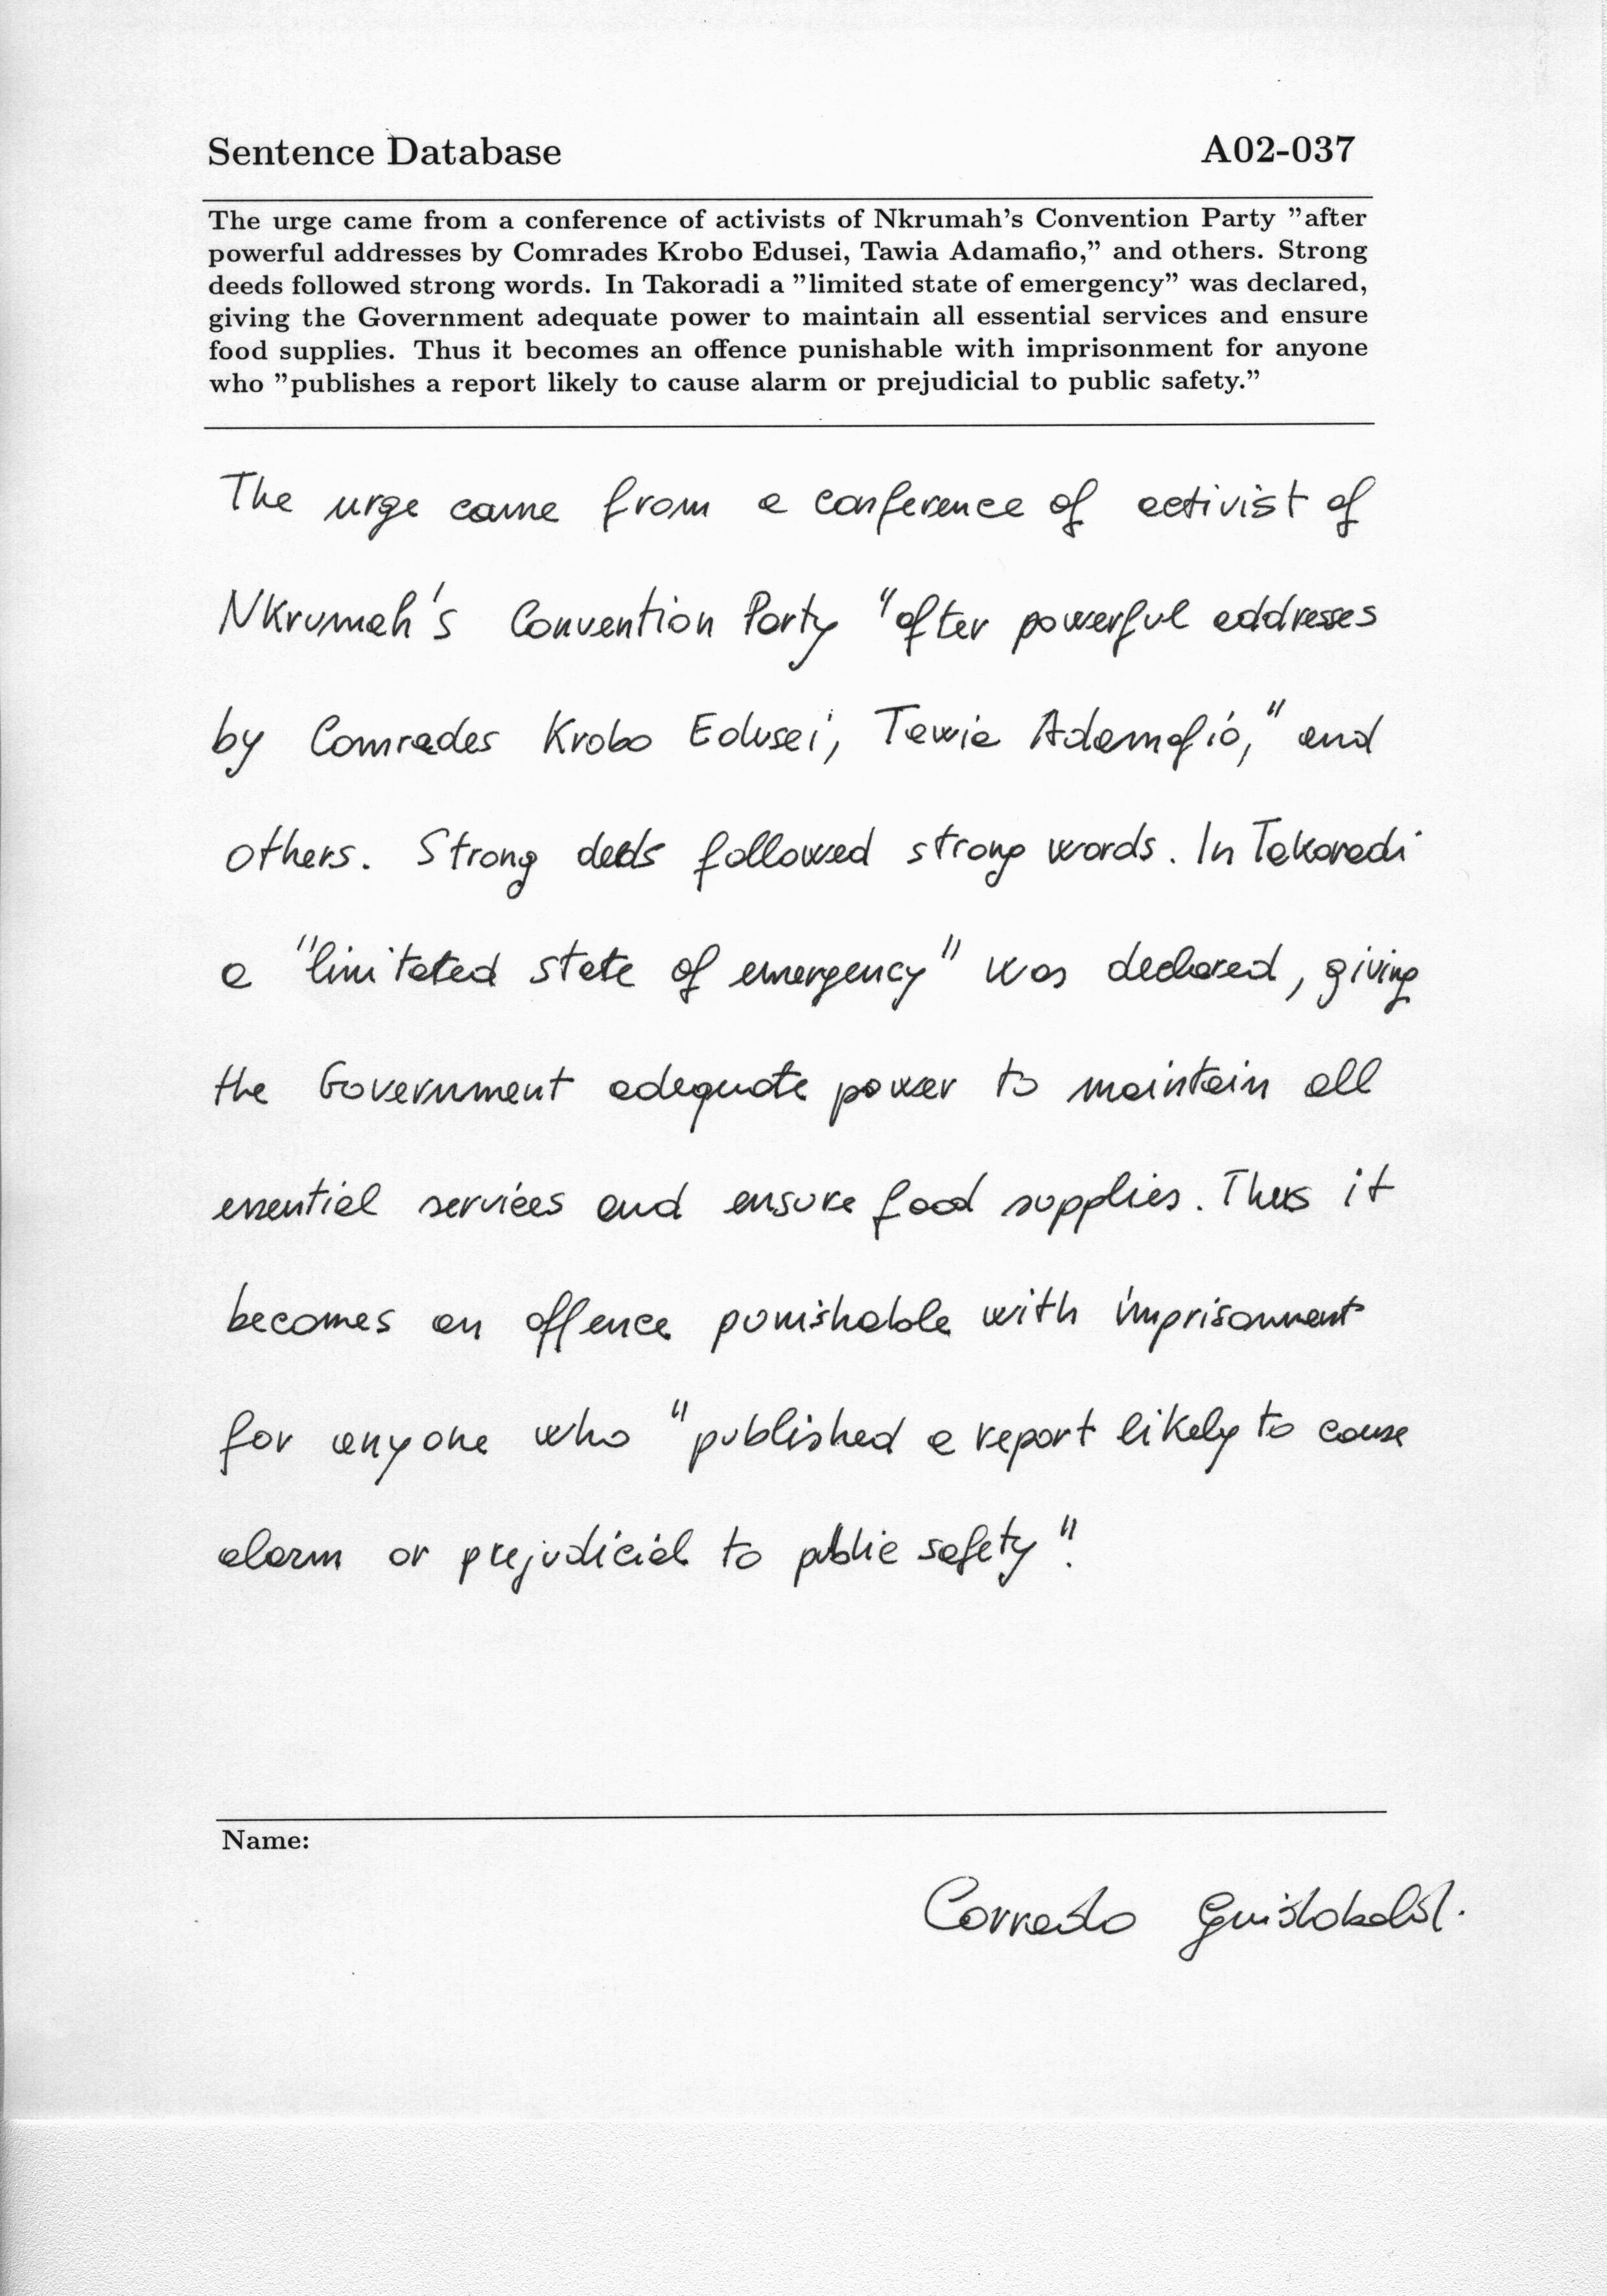 Sentence Database A02-037
The urge came from a conference of activists of Nkrumah's Convention Party ”after
powerful addresses by Comrades Krobo Edusei, Tawia Adamafio,” and others. Strong
deeds followed strong words. In Takoradi a ”limited state of emergency” was declared,
giving the Government adequate power to maintain all essential services and ensure
food supplies. Thus it becomes an offence punishable with imprisonment for anyone
who ”publishes a report likely to cause alarm or prejudicial to public safety.”
The urge came from a conference of activist of
Nkrumah's Convention Party "after powerful addresses
by Comrades Krobo Edusei, Tawia Adamafio," and
others. Strong deeds followed strong words. In Takoradi
a "limitated state of emergency" was declared, giving
the Government adequate power to maintain all
essential services and ensure food supplies. Thus it
becomes an offence punishable with imprisonment
for anyone who "published a report likely to cause
alarm or prejudicial to public safety".
Name:
Corrado